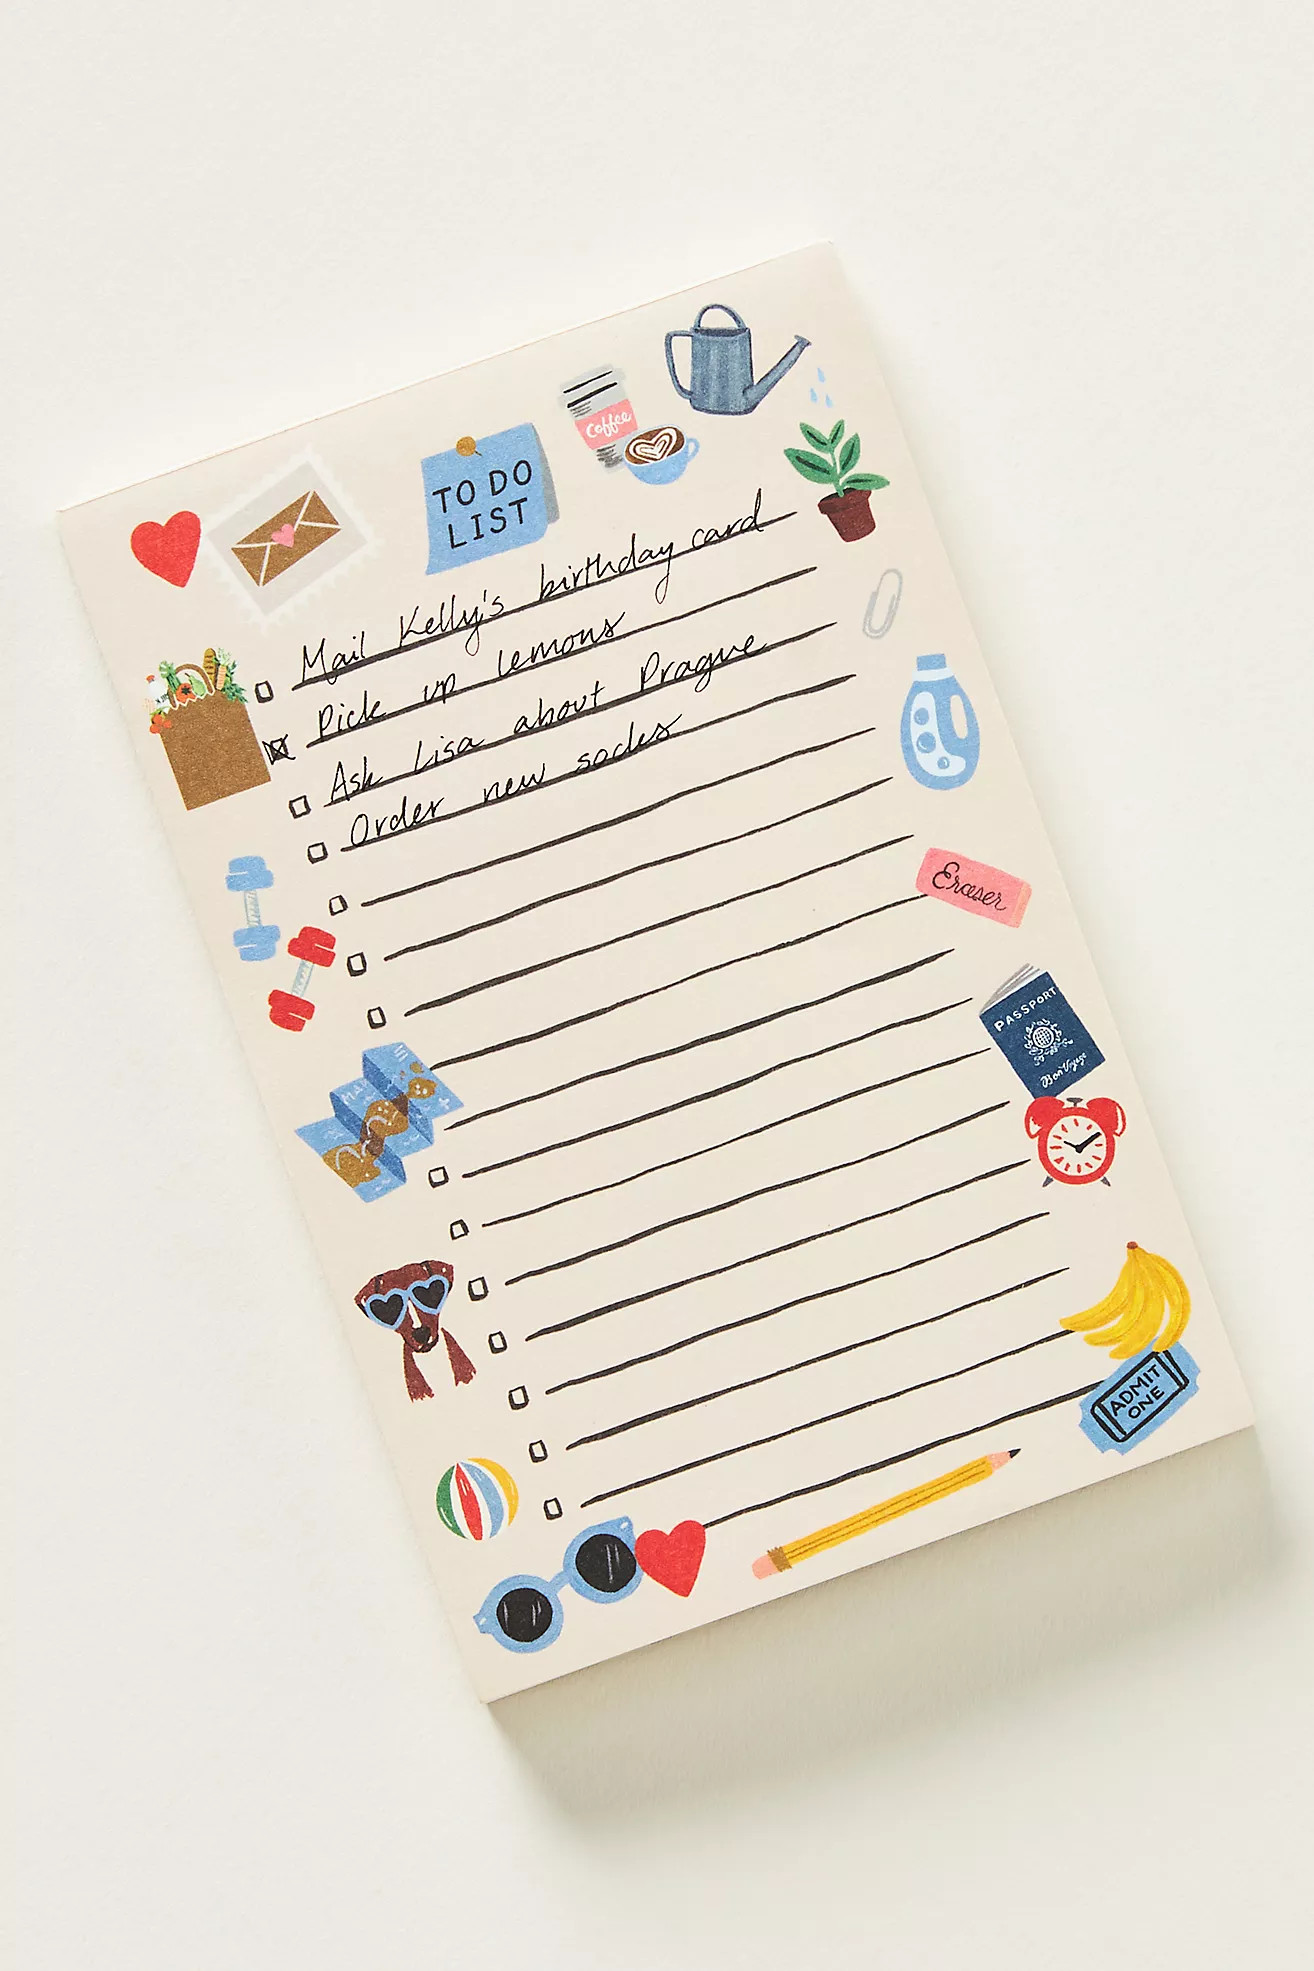 coffee
TO DO
LIST
Mail Kelly's birthday card
Pick up lemons
Ask Lisa about Prague
Order new socks
Eraser
PASSPORT
Bon Voyage
MAP
ADMIT
ONE